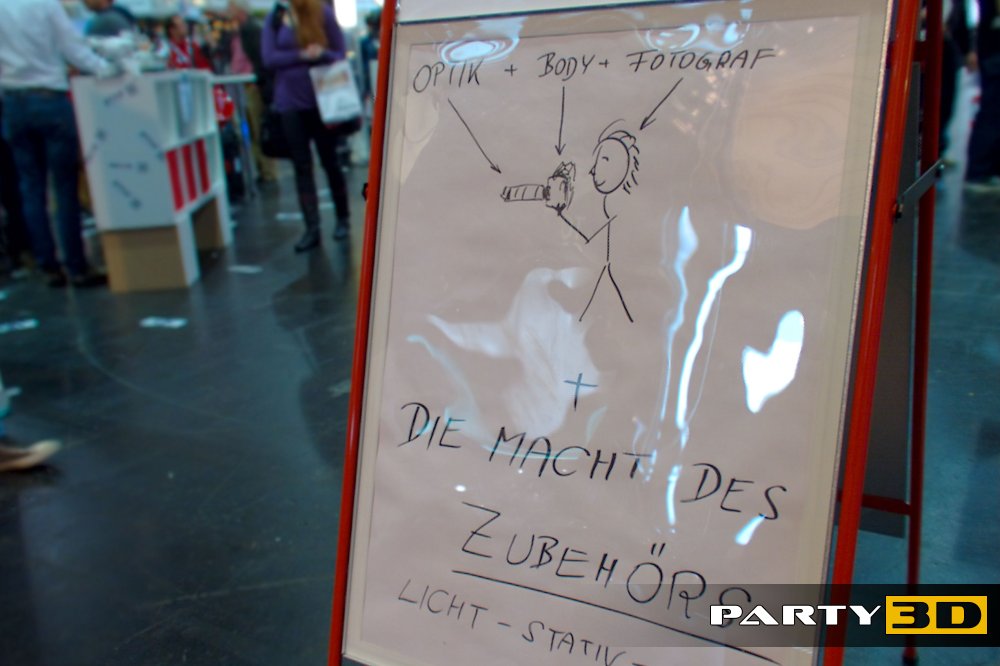 OPTIK + BODY + FOTOGRAF
+
DIE MACHT DES
ZUBEHÖRS
LICHT - STATIV -
PARTY 3D